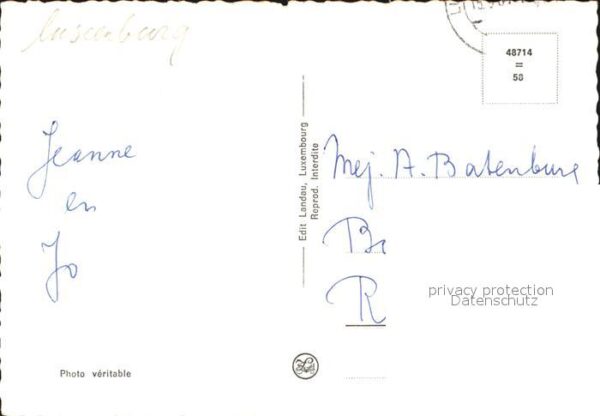 Luxemburg
48714
=
58
Jeanne
en
Jo
Edit Landau, Luxembourg
Reprod. Interdite
Mej. A. Batenburg
B
R
privacy protection
Datenschutz
Photo véritable